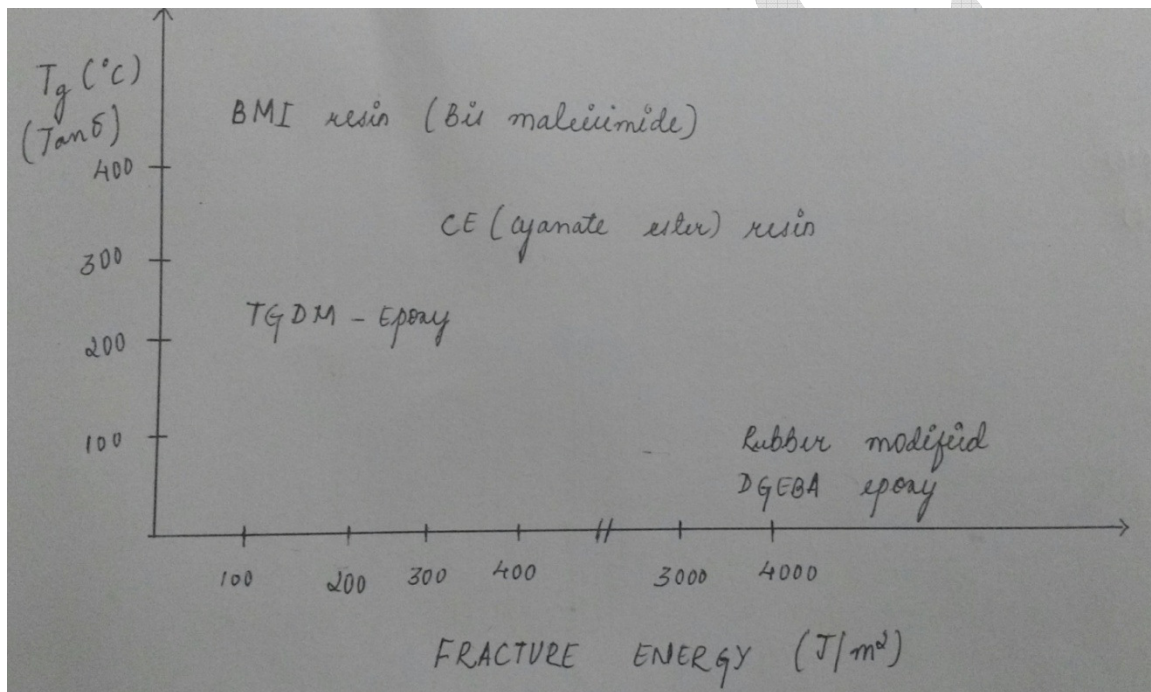 Tg (°C)
(Tanδ)
BMI resin (Bis maleiimide)
400
CE (cyanate ester) resin
300
TGDM - Epoxy
200
100
Rubber modified
DGEBA epoxy
100 200 300 400 3000 4000
FRACTURE ENERGY (J/m²)